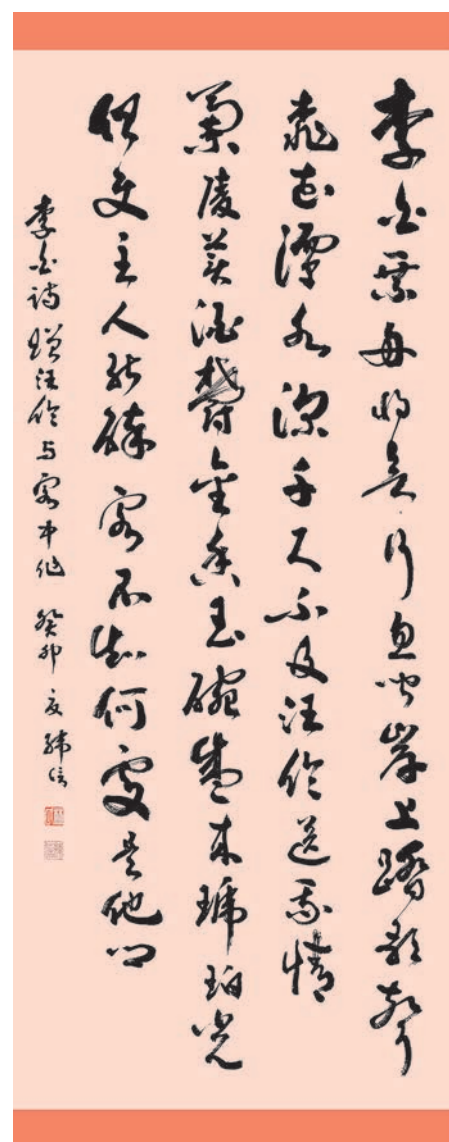 李白乘舟将欲行忽闻岸上踏歌声
桃花潭水深千尺不及汪伦送我情
兰陵美酒郁金香玉碗盛来琥珀光
但使主人能醉客不知何处是他乡
李白诗赠汪伦与客中作 癸卯 夏 纬信